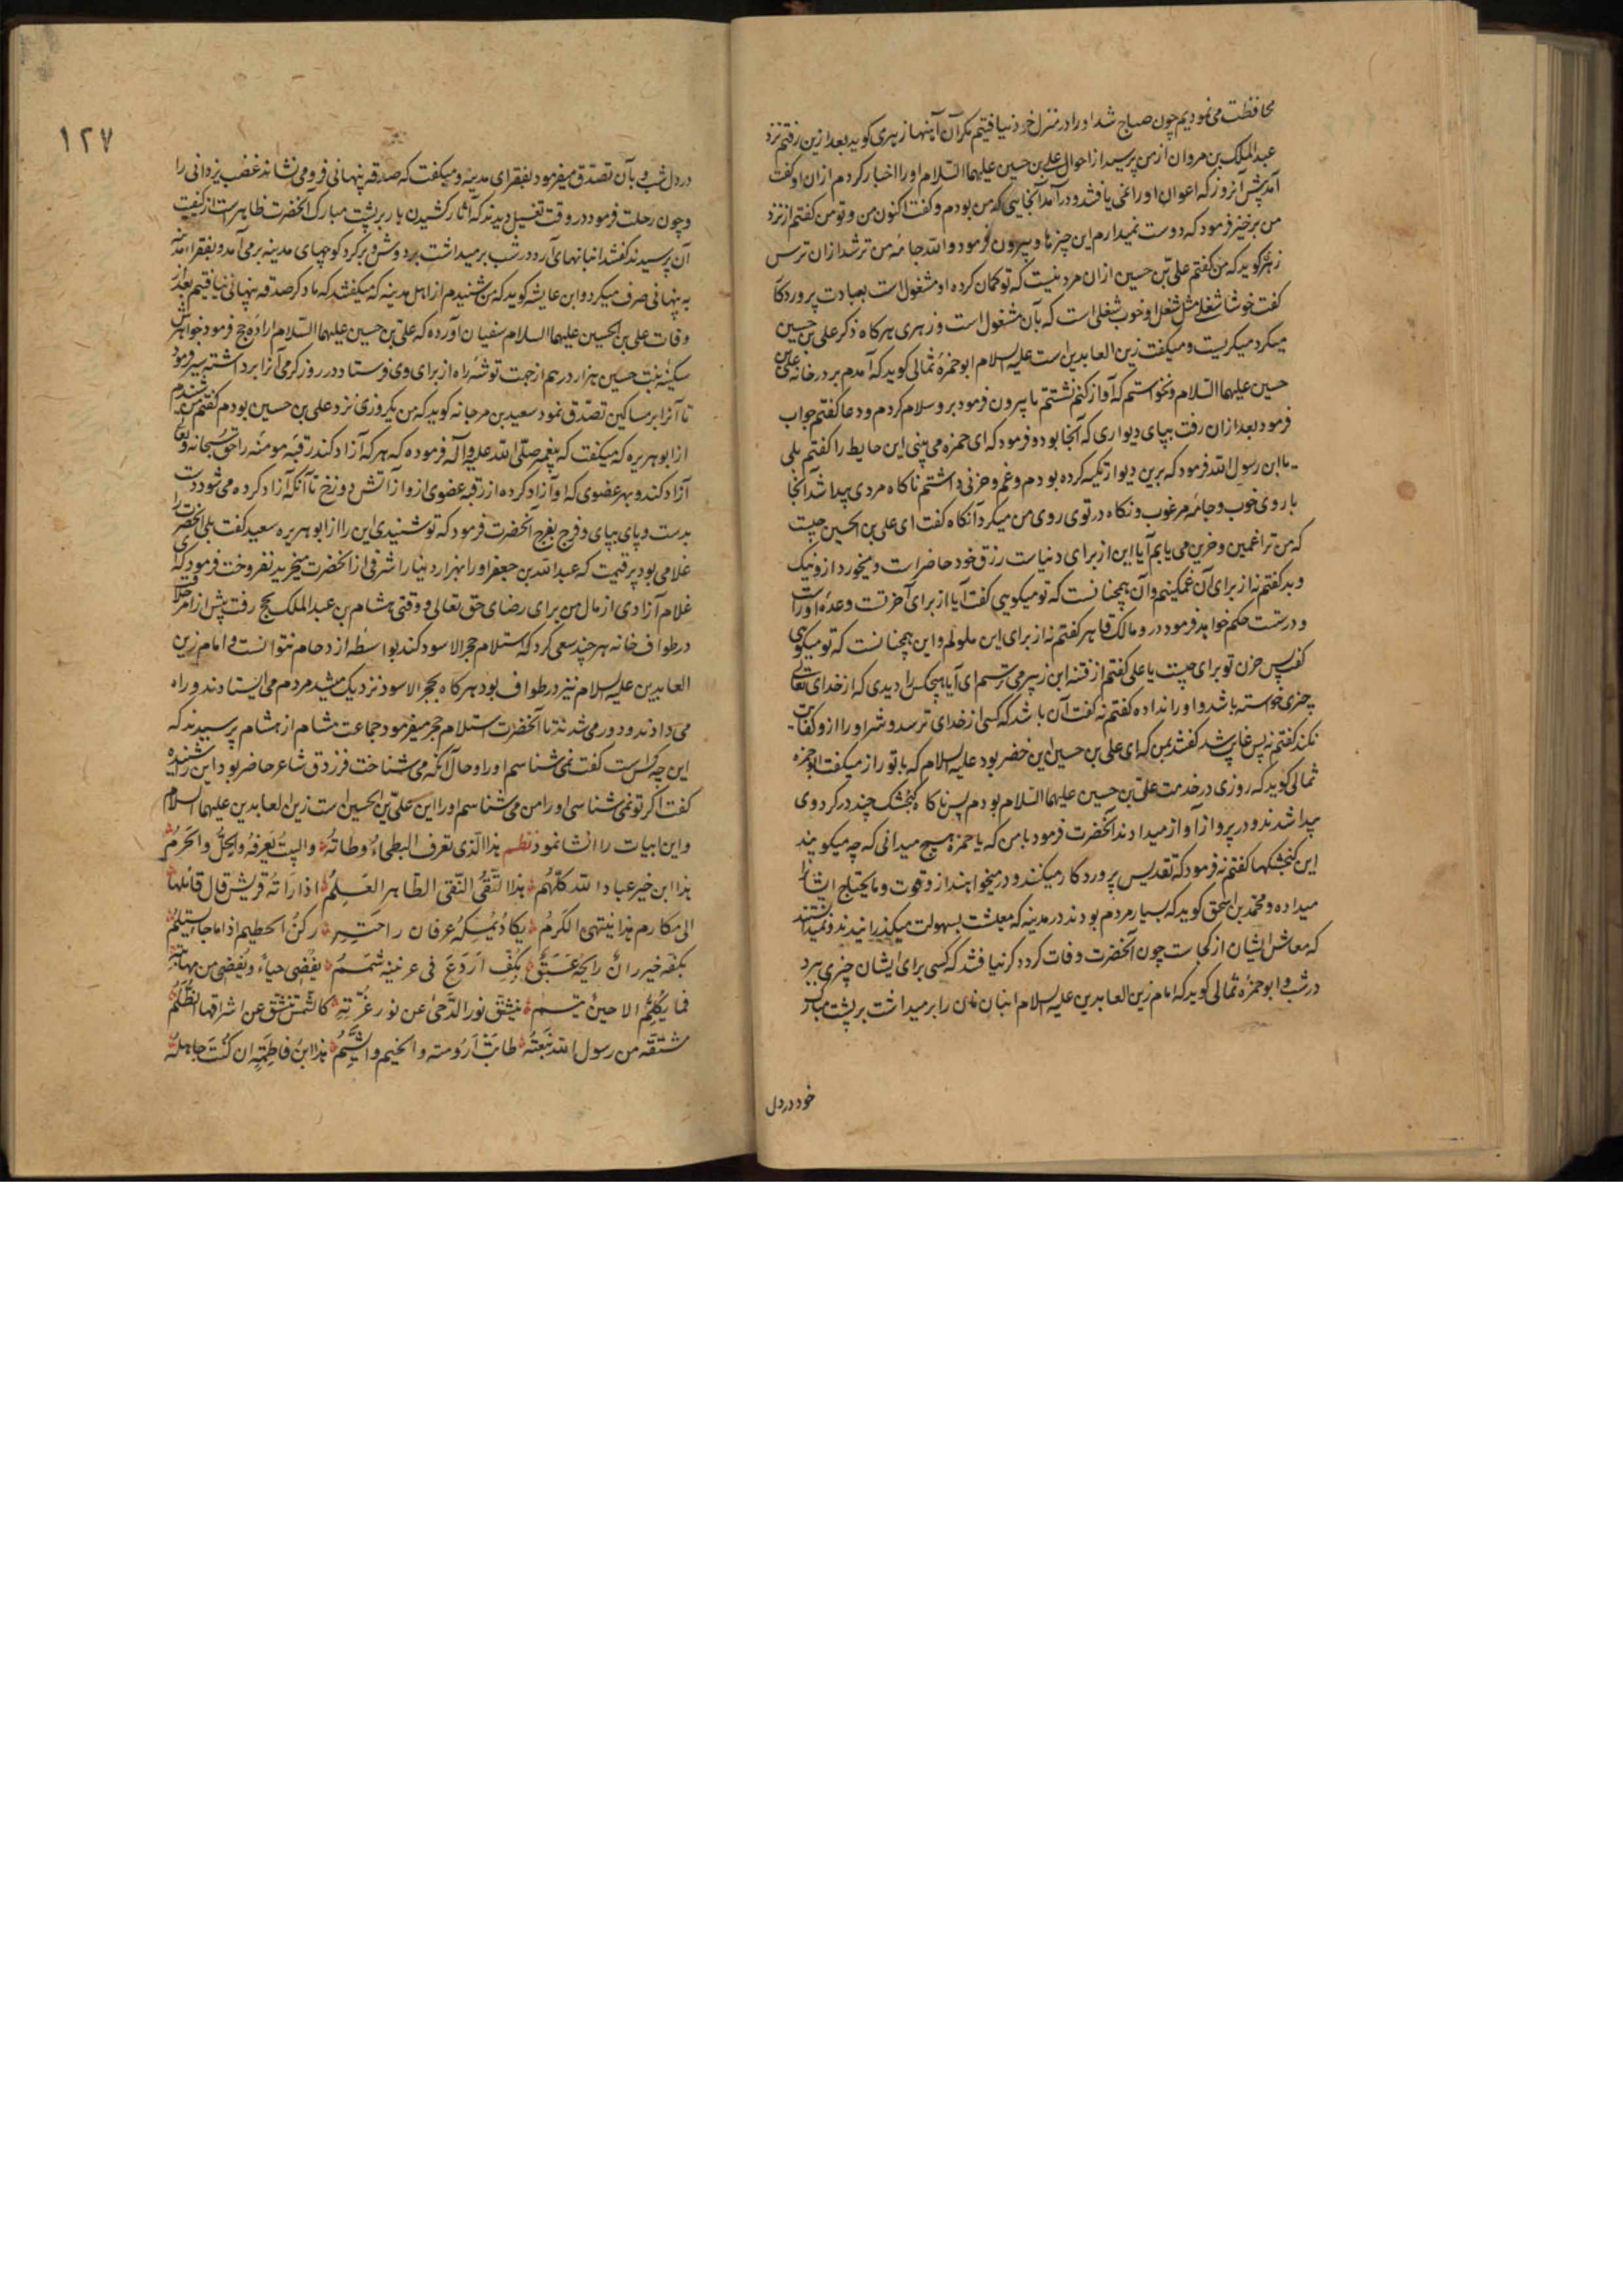 محافظت می‌نمودیم چون صباح شد او را در منزل خود نیافتیم مکر آن آهنها زهری کوید بعد ازین رفتم نزد
عبد الملک بن مروان از من پرسید از احوال علی بن حسین علیهما السلام او را اخبار کردم ازان او کفت
آمد پیش من آنروز که اعوان او را غمی یافتند و در آمد آنجایی که من بودم و کفت اکنون من و تو من کفتم از نزد
من برخیز فرمود که دوست نمیدارم این چیزها و بیرون فرمود و الله جامه من تر شد ازان ترس
زهری کوید که من کفتم علی بن حسین ازان مرد نیست که تو کمان کرده او مشغول است بعبادت پروردکار
کفت خوشا شغلی مثل شغل او خوب شغلی است که بآن مشغول است و زهری هر کاه ذکر علی بن حسین
میکرد میکریست و میکفت زین العابدین است علیه السلام ابو حمزه ثمالی کوید که آمدم بر در خانه علی بن
حسین علیهما السلام و نخواستم که آواز کنم نشستم تا بیرون فرمود برو سلام کردم و دعا کفتم جواب
فرمود بعد ازان رفت بپای دیواری که آنجا بود و فرمود که ای حمزه می بینی این حایط را کفتم بلی
یا ابن رسول الله فرمود که برین دیوار تکیه کرده بودم و غم و حزنی داشتم ناکاه مردی پیدا شد آنجا
با روی خوب و جامه مرغوب و نکاه در توی روی من میکرد آنکاه کفت ای علی بن الحسین چیست
که من ترا غمین و حزین می یابم آیا این از برای دنیاست رزق خود حاضر است و میخورد ازو نیک
و بد کفتم نه از برای آن غمکینم و آن همچنانست که تو میکویی کفت آیا از برای آخرتست وعده او راست
و درست حکم خواهد فرمود درو مالک قاهر کفتم نه از برای این ملولم و این همچنانست که تو میکویی
کفت پس حزن تو برای چیست یا علی کفتم از فتنه ابن زبیر می ترسم ای آیا هیچکس را دیدی که از خدای تعالی
چیزی خواسته باشد و او را نداده کفتم نه کفت آن باشد که کسی از خدای ترسد و شر او را ازو کفایت
نکند کفتم نه پس غایب شد کفتند بمن که ای علی بن حسین این خضر بود علیه السلام که با تو راز میکفت ابو حمزه
ثمالی کوید که روزی در خدمت علی بن حسین علیهما السلام بودم پس ناکاه کنجشک چند در کرد وی
پیدا شدند و در پرواز آواز میدادند آنحضرت فرمود بامن که یا حمزه هیچ میدانی که چه میکویند
این کنجشکها کفتم نه فرمود که تقدیس پروردکار میکنند و درمیخواهند ازو قوت و ما یحتاج ایشانرا
میداده و محمد بن اسحق کوید که بسیار مردم بودند در مدینه که معیشت بسهولت میکذرانیدند و نمیدانستند
که معاش ایشان از کجاست چون آنحضرت وفات کرد دکر نیافتند که کسی برای ایشان چیزی برد
در شب و ابو حمزه ثمالی کوید که امام زین العابدین علیه السلام انبان نان را برمیداشت بر پشت مبارک
خود در دل
۱۲۷
در دل شب و بآن تصدق میفرمود بفقرای مدینه و میکفت که صدقه پنهانی فرو می نشاند غضب یزدانی را
و چون رحلت فرمود در وقت تغسیل دیدند که آثار کشیدن بار بر پشت مبارک آنحضرت ظاهرست از کیفیت
آن پرسیدند کفتند انبانهای آرد در شب برمیداشت بر دوش و بر کرد کوچهای مدینه برمی آمد و بفقرا آنرا
به پنهانی صرف میکرد و ابن عایشه کوید که من شنیدم از اهل مدینه که میکفتند که ما دکر صدقه پنهانی نیافتیم بعد از
وفات علی بن الحسین علیهما السلام سفیان آورده که علی بن حسین علیهما السلام اراده حج فرمود خواهرش
سکینه بنت حسین هزار درهم از جهت توشه راه از برای وی فرستاد در روز کرمی آنرا برداشته سیر فرمود
تا آنرا بر مساکین تصدق نمود سعید بن مرجانه کوید که من یکروزی نزد علی بن حسین بودم کفتم من شنیدم
از ابو هریره که میکفت که پیغمبر صلی الله علیه و آله فرموده که هر که آزاد کند رقبه مومنه را حق سبحانه و تعالی
آزاد کند و بهر عضوی که او آزاد کرده از رقبه عضوی ازو از آتش دوزخ تا آنکه آزاد کرده می شود دست
بدست و پای بپای و فرج بفرج آنحضرت فرمود که تو شنیدی این را از ابو هریره سعید کفت بلی آنحضرت را
غلامی بود پر قیمت که عبد الله بن جعفر او را بهزار دینار اشرفی از آنحضرت میخرید نفروخت فرمود که
غلام آزادی از مال من برای رضای حق تعالی و وقتی هشام بن عبد الملک بحج رفت پیش از امر خلافت
در طواف خانه هر چند سعی کرد که استلام حجر الاسود کند بواسطه ازدحام نتوانست و امام زین
العابدین علیه السلام نیز در طواف بود هر کاه بحجر الاسود نزدیک میشد مردم می ایستادند و راه
می دادند و دور می شدند تا آنحضرت استلام حجر میفرمود جماعت هشام از هشام پرسیدند که
این چه کس است کفت نمی شناسم او را و حال آنکه می شناخت فرزدق شاعر حاضر بود این را شنیده
کفت اکر تو نمی شناسی او را من می شناسم او را این علی بن الحسین است زین العابدین علیهما السلام
و این ابیات را انشا نمود نظم هذا الذی تعرف البطحاءُ وطاتهُ والبیتُ یَعرفهُ والحِلُّ والحَرَمُ
هذا ابن خیر عباد الله کلّهمُ هذا التَّقیُّ النَّقی الطّاهر العَلَمُ اذا رَاَتهُ قریش قال قائلها
الی مکارم هذا ینتهی الکَرَمُ یکادُ یُمسِکهُ عرفان راحَتِهِ رکنُ الحطیم اذا ما جاءَ یستلمُ
بکفّه خیزرانٌ رایحهُ عَبَقٌ بکفِّ اَروَعَ فی عرنینه شَمَمُ یُغضی حیاءً و یُغضی من مهابته
فما یُکَلَّمُ الا حینَ یبتسمُ ینشقّ نور الدُّجی عن نور غُرَّتِهِ کالشَّمس تنشقّ عن اشراقها الظُّلَمُ
مشتقّه من رسول الله نَبعَتُهُ طابَت اَرُومته والخیم والشِّیَمُ هذا ابنُ فاطِمَةِ ان کنتَ جاهلهُ